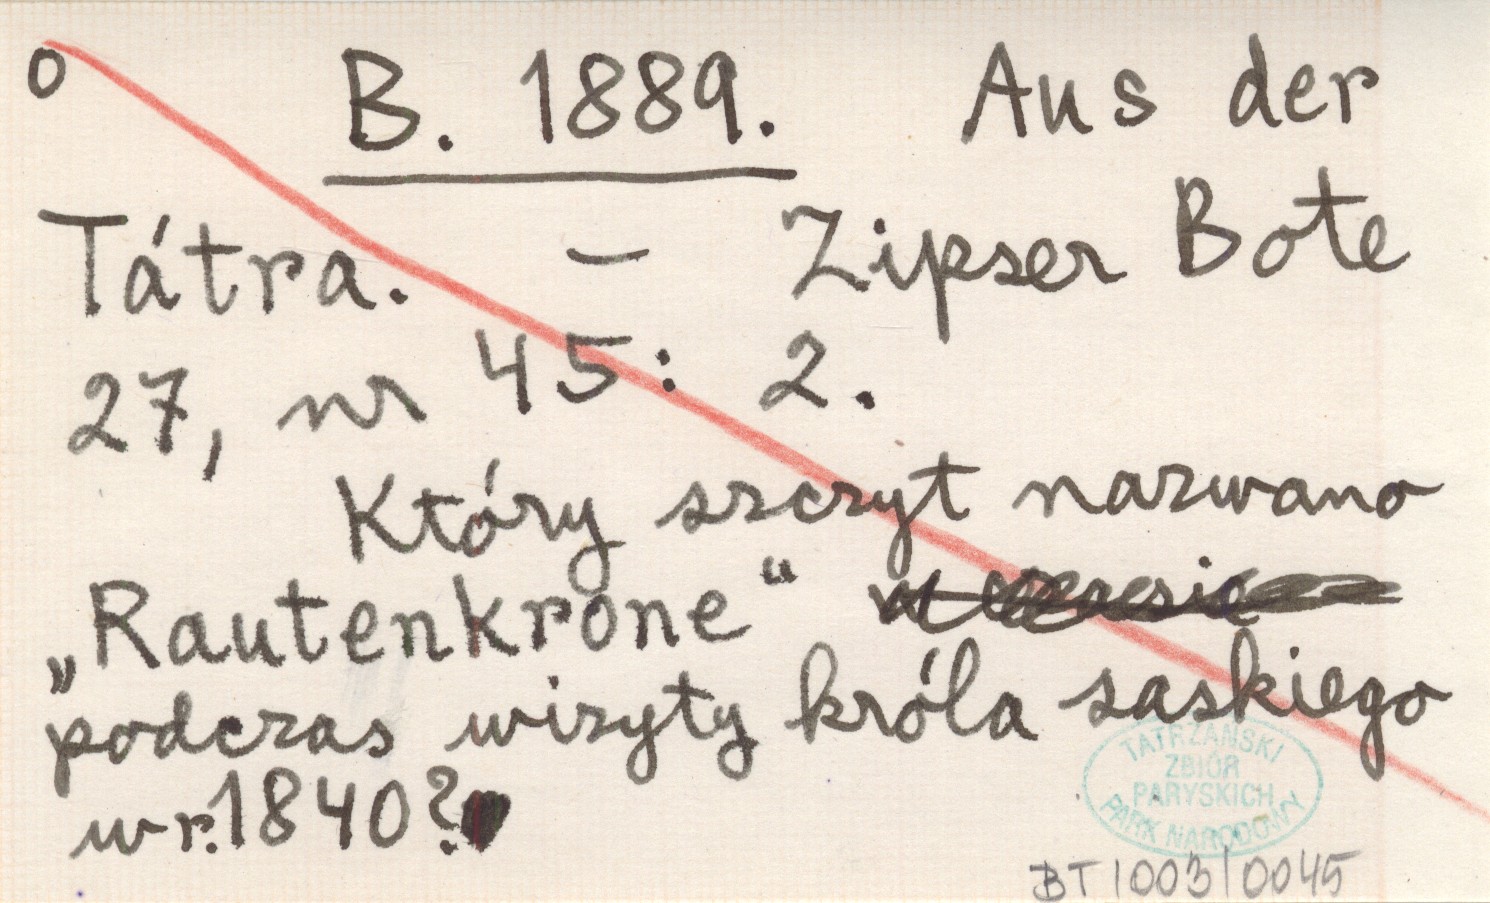 o B. 1889. Aus der
Tátra. – Zipser Bote
27, nr 45: 2.
Który szczyt nazwano
„Rautenkrone“
podczas wizyty króla saskiego
w r. 1840?
TATRZAŃSKI
ZBIÓR
PARYSKICH
PARK NARODOWY
BT/003/0045